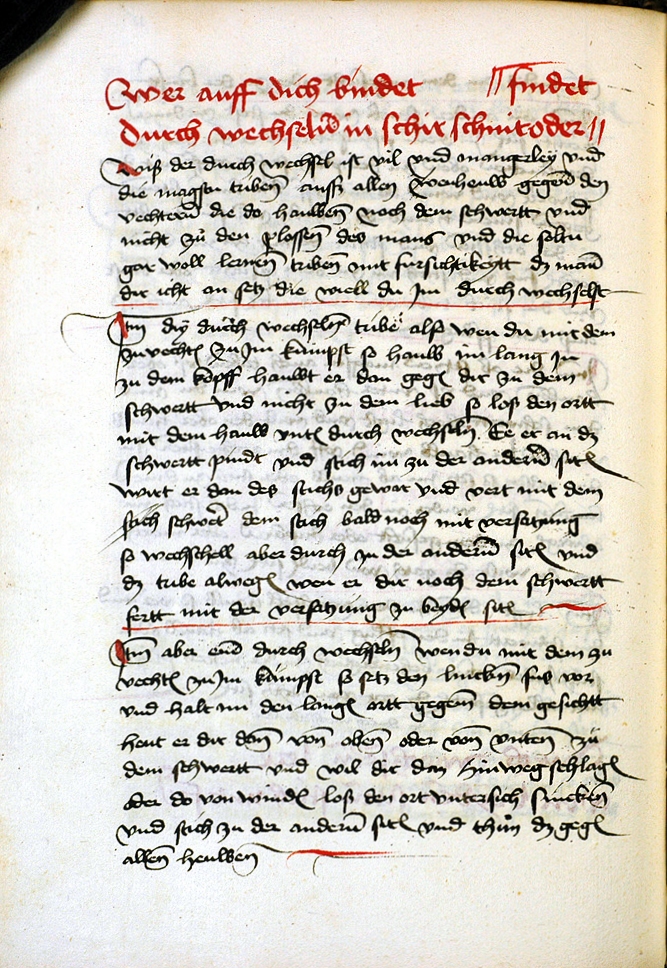 Wer auff dich bindet // findet
Durch wechseln in schir schnit oder //
Wiß der durch wechsel ist vil vnd mangerley vnd
die magstu triben auß allen hewen gegen den
vechtern die do hawben noch dem schwertt vnd
nicht zů den plossen des mans vnd die soltu
gar woll lernen triben mit fursichtikeytt dz man
dir icht an setz die wiell du Im durch wechselst
Itm diß durch wechseln tribe also wen du mit dem
zuvechten zu Im kumpst so hawb im lang In
zu dem kopff hawbt er dan gegen dir zu dem
schwertt vnd nicht zu dem lieb so loß den ortt
mit dem hawb vnten durch wechseln Ee er an dz
schwertt pindt vnd stich im zu der andern siten
wirt er dan des stichs gewar vnd vert mit dem
schwert dem stich bald noch mit versatzung
so wechschell aber durch zu der andern siten vnd
dz tribe alwegen wen er dir noch dem schwertt
fertt mit der versatzung zu beyden siten
Itm aber ein durch wechseln wen du mit dem zu
vechten zu Im kumpst so setz den lincken fus vor
vnd halt im den langen ortt gegem dem gesichtt
heut er dir dan von oben oder von vnten zů
dem schwertt vnd wil dir das hinweg schlagen
oder do von winden loß den ort vntersich sincken
vnd stich zu der andern siten vnd thůn dz gegen
allen hewben